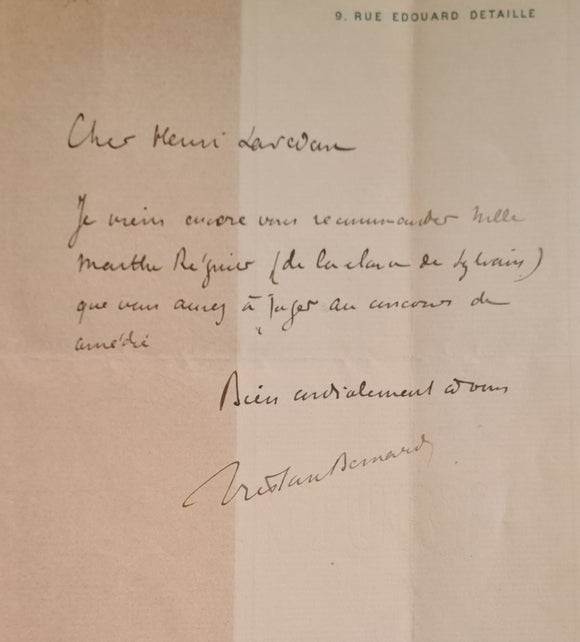 9, RUE EDOUARD DETAILLE
Cher Henri Lavedan
Je viens encore vous recommander Mlle
Marthe Régnier (de la classe de Sylvain)
que vous aurez à juger au concours de
comédie
Bien cordialement à vous
Tristan Bernard